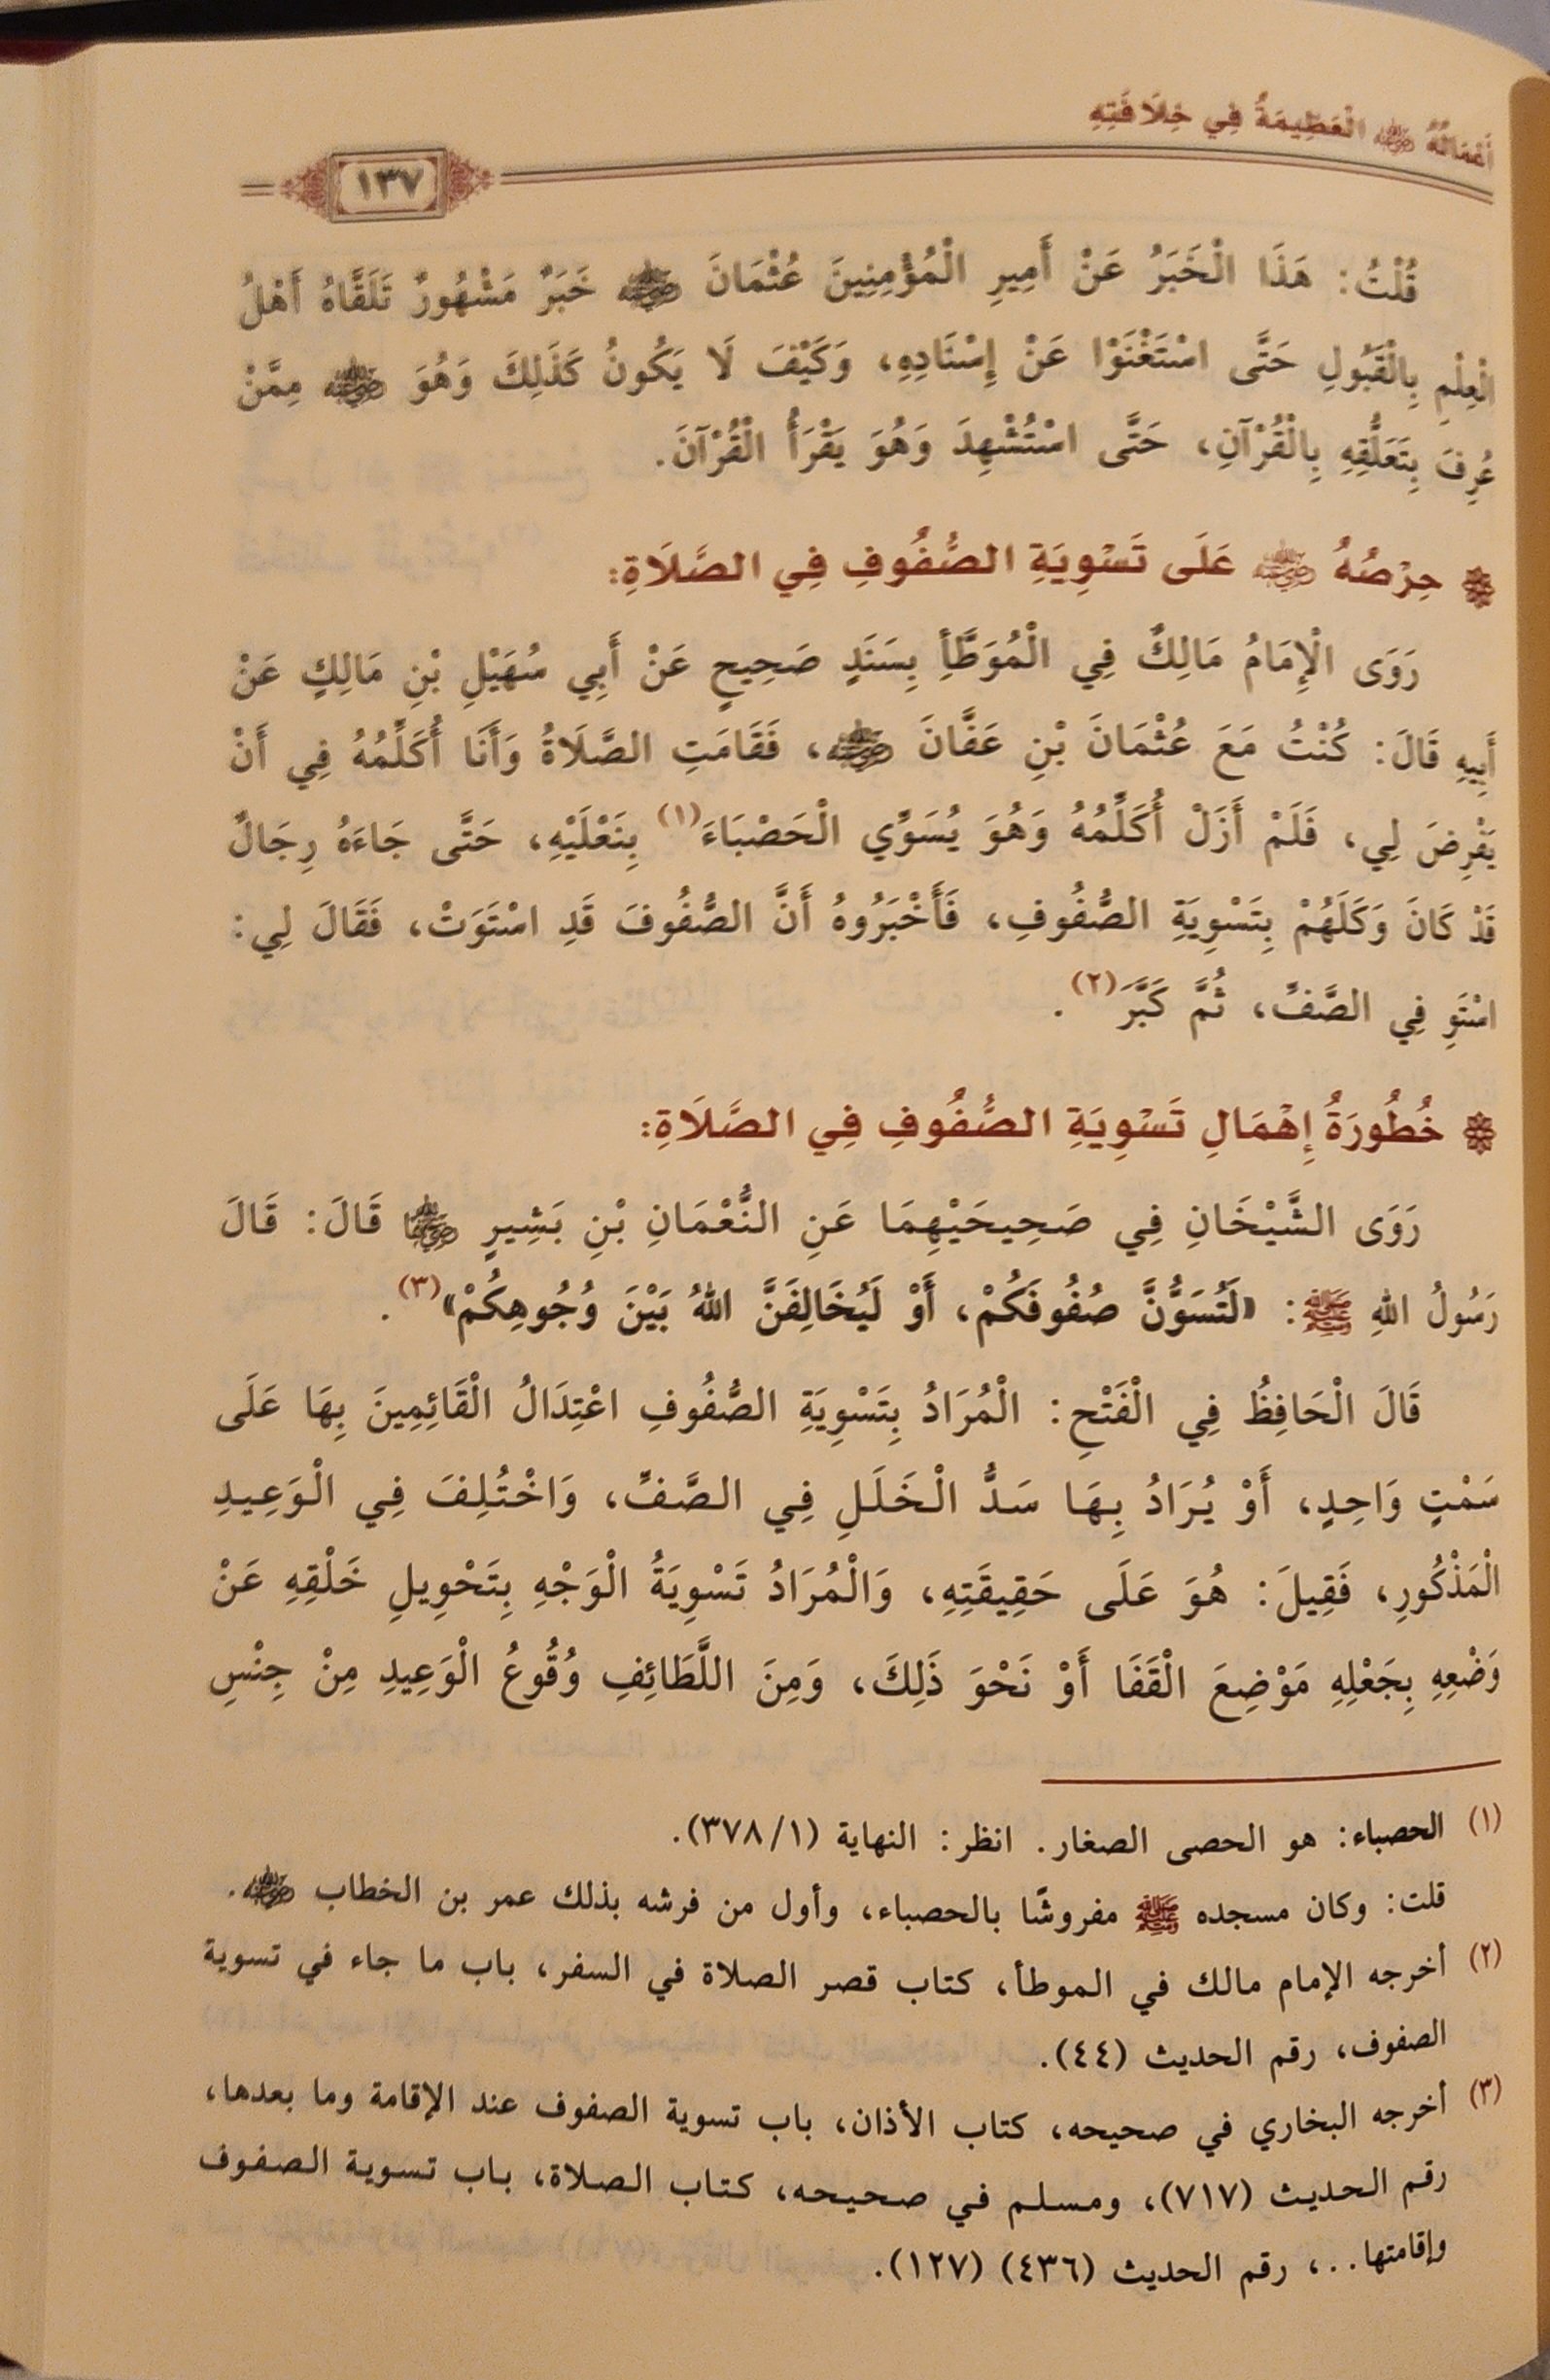 أَعْمَالُهُ ﵁ الْعَظِيمَةُ فِي خِلَافَتِهِ
١٣٧
قُلْتُ: هَذَا الْخَبَرُ عَنْ أَمِيرِ الْمُؤْمِنِينَ عُثْمَانَ ﵁ خَبَرٌ مَشْهُورٌ تَلَقَّاهُ أَهْلُ
الْعِلْمِ بِالْقَبُولِ حَتَّى اسْتَغْنَوْا عَنْ إِسْنَادِهِ، وَكَيْفَ لَا يَكُونُ كَذَلِكَ وَهُوَ ﵁ مِمَّنْ
عُرِفَ بِتَعَلُّقِهِ بِالْقُرْآنِ، حَتَّى اسْتُشْهِدَ وَهُوَ يَقْرَأُ الْقُرْآنَ.
❁ حِرْصُهُ ﵁ عَلَى تَسْوِيَةِ الصُّفُوفِ فِي الصَّلَاةِ:
رَوَى الْإِمَامُ مَالِكٌ فِي الْمُوَطَّأِ بِسَنَدٍ صَحِيحٍ عَنْ أَبِي سُهَيْلِ بْنِ مَالِكٍ عَنْ
أَبِيهِ قَالَ: كُنْتُ مَعَ عُثْمَانَ بْنِ عَفَّانَ ﵁، فَقَامَتِ الصَّلَاةُ وَأَنَا أُكَلِّمُهُ فِي أَنْ
يَفْرِضَ لِي، فَلَمْ أَزَلْ أُكَلِّمُهُ وَهُوَ يُسَوِّي الْحَصْبَاءَ(١) بِنَعْلَيْهِ، حَتَّى جَاءَهُ رِجَالٌ
قَدْ كَانَ وَكَلَهُمْ بِتَسْوِيَةِ الصُّفُوفِ، فَأَخْبَرُوهُ أَنَّ الصُّفُوفَ قَدِ اسْتَوَتْ، فَقَالَ لِي:
اسْتَوِ فِي الصَّفِّ، ثُمَّ كَبَّرَ(٢).
❁ خُطُورَةُ إِهْمَالِ تَسْوِيَةِ الصُّفُوفِ فِي الصَّلَاةِ:
رَوَى الشَّيْخَانِ فِي صَحِيحَيْهِمَا عَنِ النُّعْمَانِ بْنِ بَشِيرٍ ﵄ قَالَ: قَالَ
رَسُولُ اللهِ ﷺ: «لَتُسَوُّنَّ صُفُوفَكُمْ، أَوْ لَيُخَالِفَنَّ اللهُ بَيْنَ وُجُوهِكُمْ»(٣).
قَالَ الْحَافِظُ فِي الْفَتْحِ: الْمُرَادُ بِتَسْوِيَةِ الصُّفُوفِ اعْتِدَالُ الْقَائِمِينَ بِهَا عَلَى
سَمْتٍ وَاحِدٍ، أَوْ يُرَادُ بِهَا سَدُّ الْخَلَلِ فِي الصَّفِّ، وَاخْتُلِفَ فِي الْوَعِيدِ
الْمَذْكُورِ، فَقِيلَ: هُوَ عَلَى حَقِيقَتِهِ، وَالْمُرَادُ تَسْوِيَةُ الْوَجْهِ بِتَحْوِيلِ خَلْقِهِ عَنْ
وَضْعِهِ بِجَعْلِهِ مَوْضِعَ الْقَفَا أَوْ نَحْوَ ذَلِكَ، وَمِنَ اللَّطَائِفِ وُقُوعُ الْوَعِيدِ مِنْ جِنْسِ
(١) الحصباء: هو الحصى الصغار. انظر: النهاية (٣٧٨/١).
قلت: وكان مسجده ﷺ مفروشًا بالحصباء، وأول من فرشه بذلك عمر بن الخطاب ﵁.
(٢) أخرجه الإمام مالك في الموطأ، كتاب قصر الصلاة في السفر، باب ما جاء في تسوية
الصفوف، رقم الحديث (٤٤).
(٣) أخرجه البخاري في صحيحه، كتاب الأذان، باب تسوية الصفوف عند الإقامة وما بعدها،
رقم الحديث (٧١٧)، ومسلم في صحيحه، كتاب الصلاة، باب تسوية الصفوف
وإقامتها...، رقم الحديث (٤٣٦) (١٢٧).